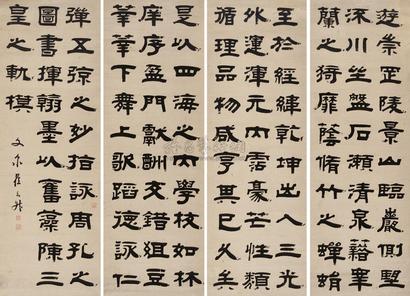 遊崇罡陵景山臨巖側望
流川坐盤石瀨清泉藉皋
蘭之猗靡蔭脩竹之蟬蜎
至於經緯乾坤出入三光
外運渾元內霑豪芒性類
循理品物咸亨其已久矣
是以四海之內學校如林
庠序盈門獻酬交錯俎豆
莘莘下舞上歌蹈德詠仁
彈五弦之妙指詠周孔之
圖書揮翰墨以奮藻陳三
皇之軌模